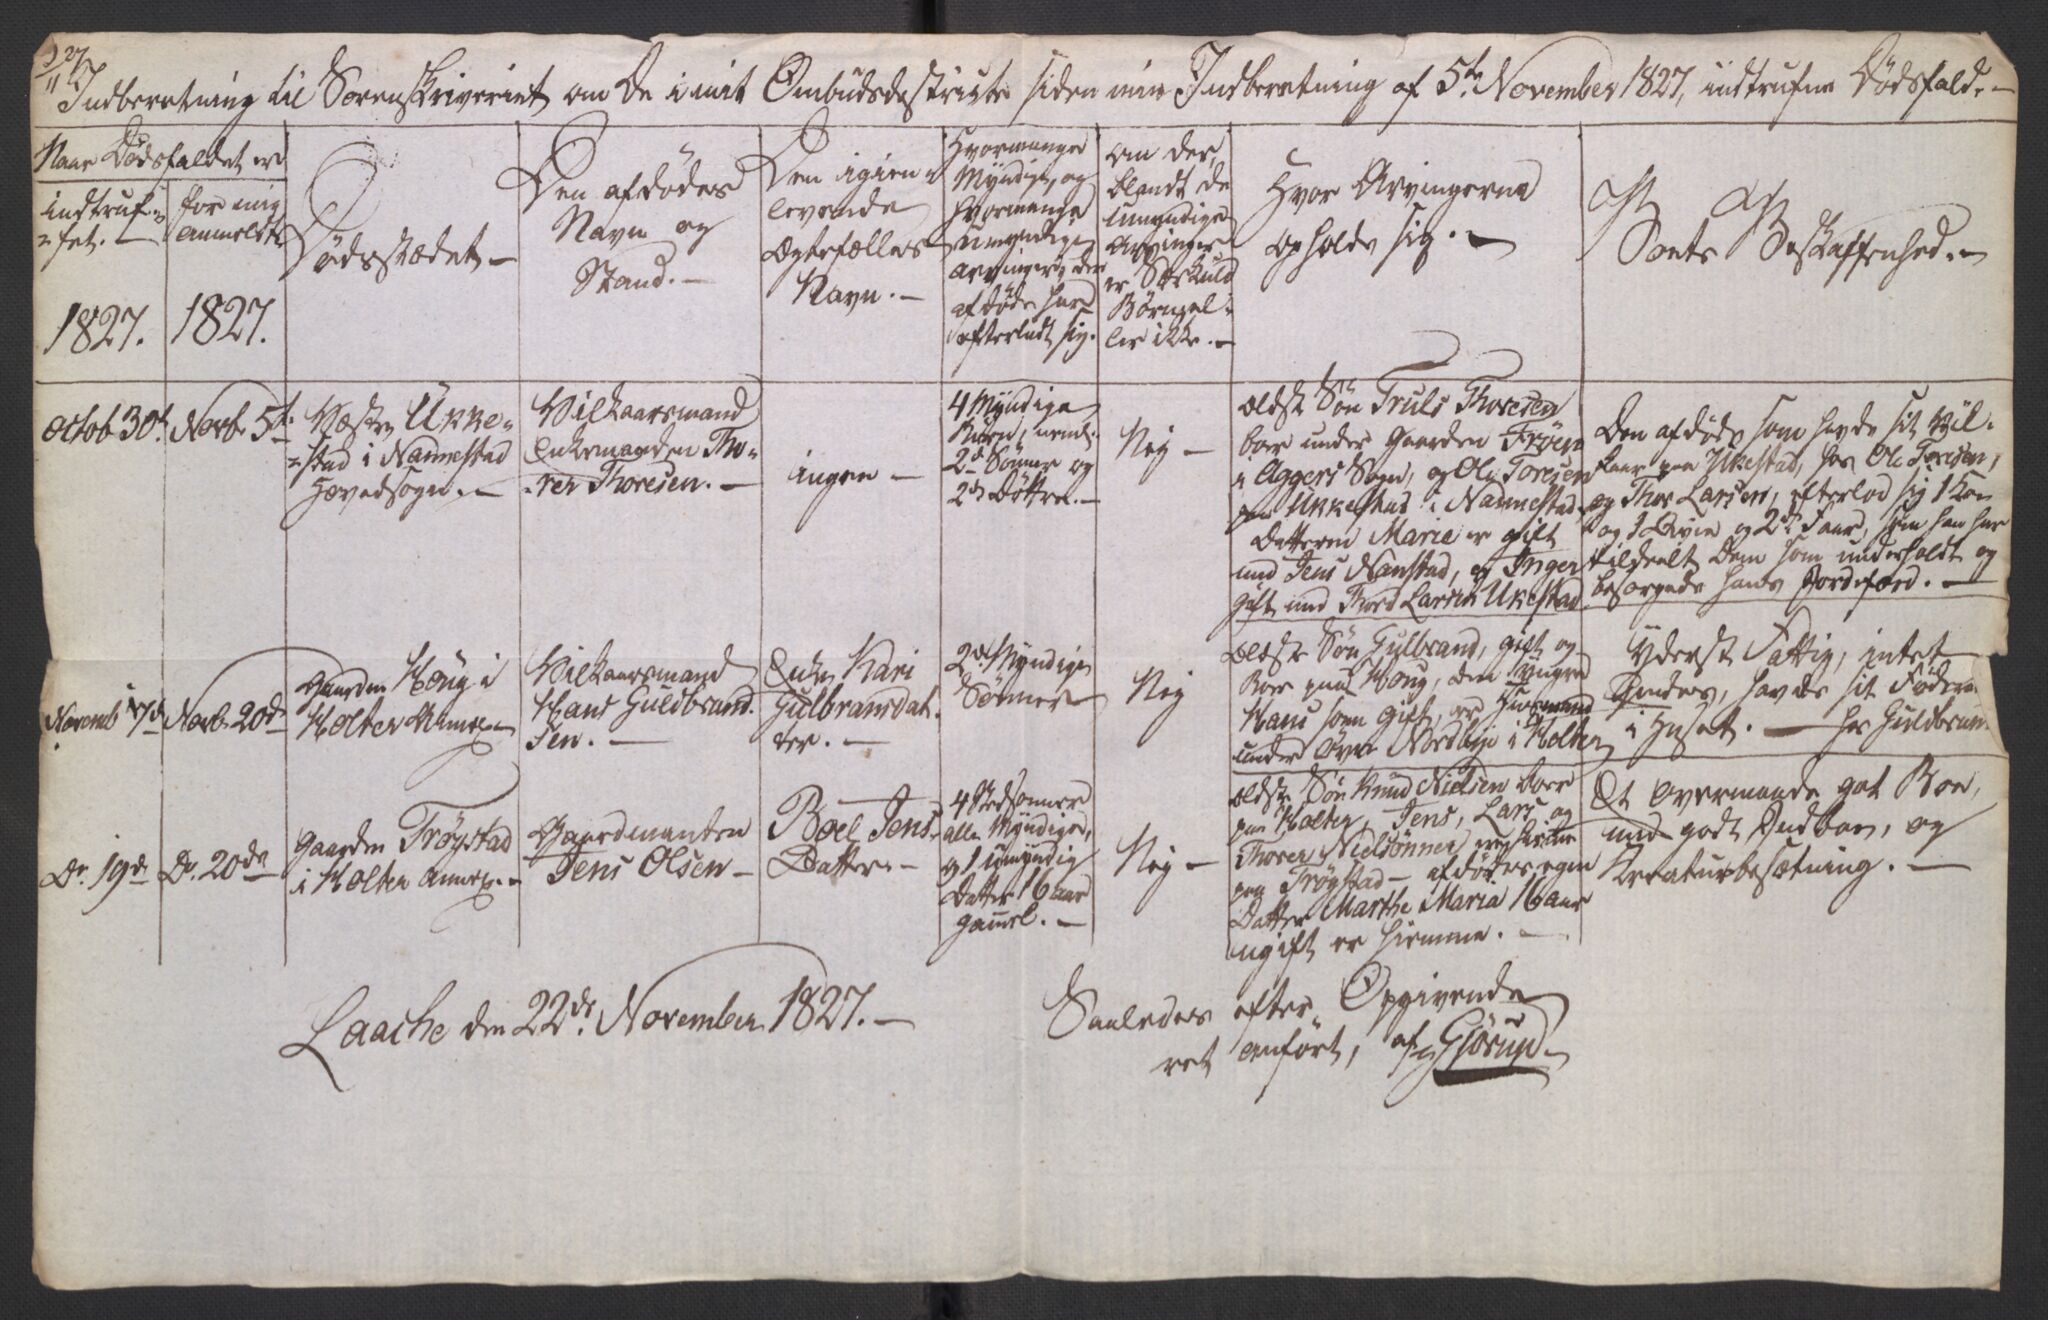 27/11
Indberetning til Sorenskriveriet om De i mit Ombudsdestricte siden min Indberetning af 5te November 1827, indtrufne Dødsfald. -
Naar Dødsfaldet er
indtruf-
fet. -
1827.
for mig
anmeldt.
1827.
Dødsstædet -
Den afdødes
Navn og
Stand. -
Den igien-
levende
Ægtefælles
Navn. -
Hvormange
Myndige, og
hvormange
umyndige
arvinger den
afdøde har
efterladt sig.
om der,
blandt de
umyndige
arvinger
er Særkuld
Børn, el-
ler ikke. -
Hvor Arvingerne
opholde sig. -
Boets Beskaffenhed. -
Octob 30te
Novb. 5te
Væstre Ukke-
stad i Nannestad
Hovedsogn. -
Vilkaarsmand
Enkemanden Tho-
rer Thoresen. -
ingen -
4 Myndige
Børn, neml:
2de Sønner og
2de Døttre. -
Nej -
ældste Søn Truls Thoresen
boer under Gaarden Frøen
i Aggers Sogn, og Ole Toresen
paa Ukkestad i Nannestad,
Datteren Marie er gift
med Jens Nanstad, og Inger
gift med Thord Larsen Ukestad.
Den afdøde som havde sit Vil-
kaar paa Ukestad, hos Ole Toresen,
og Thor Larsen, efterlod sig 1 Koe
og 1 Qvie og 2de Faar, som han har
tildeelt Dem som underholdt og
besørgede hans Jordefærd. -
Novemb 17de
Novb. 20de
Gaarden Houg i
Holter Annex -
Vilkaarsmand
Hans Guldbrand-
sen. -
Enke Kari
Gulbransdat-
ter. -
2de Myndige
Sønner
Nej
Ældste Søn Gulbrand, gift og
Boer paa Houg, den yngre
Hans som gift, er Huusmand
under øvre Nordbye i Holter
Yderst Fattig, intet
Eiendes, havde sit Føderaad
i Huset. - hos Guldbrand
Do. 19de
Do. 20de
Gaarden Frøystad
i Holter Annex. -
Gaardmanden
Jens Olsen -
Boel Jens
Datter. -
4 Stedsønner
alle Myndige,
og 1 umyndig
Datter 16 aar
gammel. -
Nej -
ældste Søn Knud Nielsen boer
paa Holter, Jens, Lars og
Thorer Nielsønner
paa Frøystad - afdødes egen
Datter Marthe Maria 16 aar
ugift er hiemme. -
Et overmaade got Boe,
med godt Indboe, og
Kreaturbesætning. -
Laache den 22de November 1827. -
Saaledes efter Opgivende
ret anført, af Gjørud -